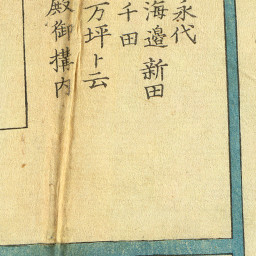 永代
海邉新田
千田
万坪ト云
殿御構内